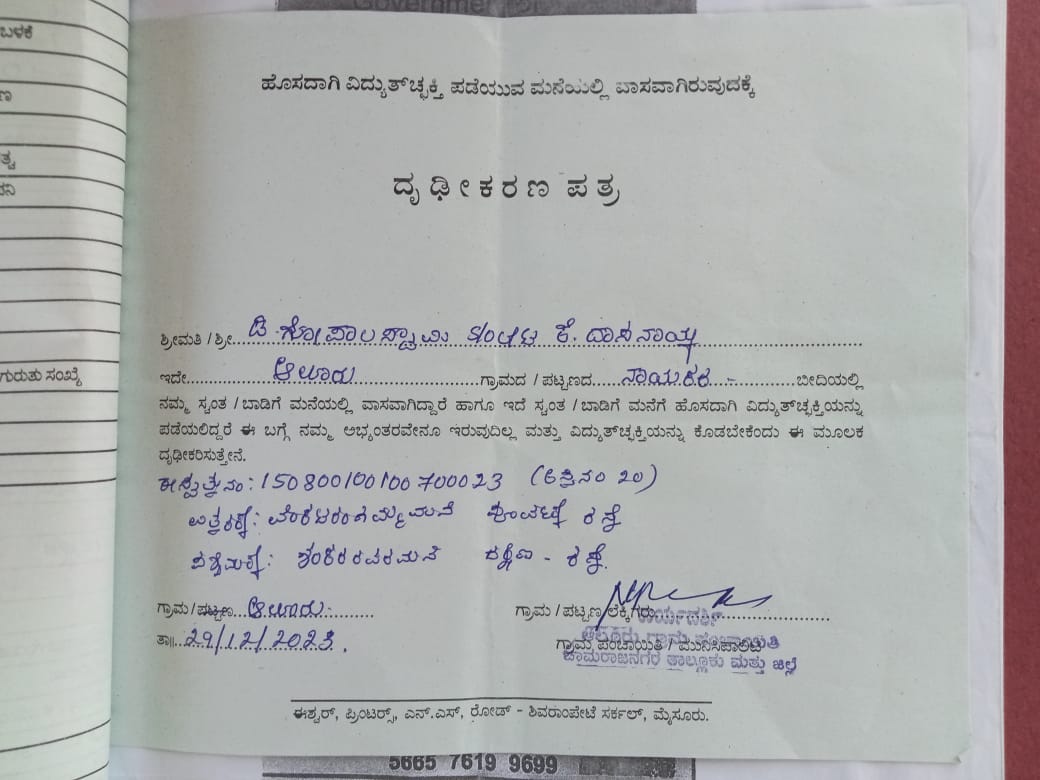 Government
ಬಳಕೆ
ಗುರುತು ಸಂಖ್ಯೆ
ಹೊಸದಾಗಿ ವಿದ್ಯುತ್‌ಚ್ಛಕ್ತಿ ಪಡೆಯುವ ಮನೆಯಲ್ಲಿ ವಾಸವಾಗಿರುವುದಕ್ಕೆ
ದೃಢೀಕರಣ ಪತ್ರ
ಶ್ರೀಮತಿ / ಶ್ರೀ... ಡಿ. ಗೋಪಾಲಸ್ವಾಮಿ ಕೆ. ದಾಸನಾಯ್ಕ
ಇದೇ... ಆಲೂರು ...ಗ್ರಾಮದ / ಪಟ್ಟಣದ... ನಾಯಕರ - ...ಬೀದಿಯಲ್ಲಿ
ನಮ್ಮ ಸ್ವಂತ / ಬಾಡಿಗೆ ಮನೆಯಲ್ಲಿ ವಾಸವಾಗಿದ್ದಾರೆ ಹಾಗೂ ಇದೆ ಸ್ವಂತ / ಬಾಡಿಗೆ ಮನೆಗೆ ಹೊಸದಾಗಿ ವಿದ್ಯುತ್‌ಚ್ಛಕ್ತಿಯನ್ನು
ಪಡೆಯಲಿದ್ದರೆ ಈ ಬಗ್ಗೆ ನಮ್ಮ ಅಭ್ಯಂತರವೇನೂ ಇರುವುದಿಲ್ಲ ಮತ್ತು ವಿದ್ಯುತ್‌ಚ್ಛಕ್ತಿಯನ್ನು ಕೊಡಬೇಕೆಂದು ಈ ಮೂಲಕ
ದೃಢೀಕರಿಸುತ್ತೇನೆ.
ಈಸ್ವತ್ತು ನಂ: 150800100100700023 ( ನಂ 20)
ಉತ್ತರಕ್ಕೆ: ವೆಂಕಟರಂಗಮ್ಮ ಮನೆ ಪೂರ್ವಕ್ಕೆ ರಸ್ತೆ
ಪಶ್ಚಿಮಕ್ಕೆ: ಶಂಕರರವರ ಮನೆ ದಕ್ಷಿಣ - ರಸ್ತೆ.
ಗ್ರಾಮ / ಪಟ್ಟಣ... ಆಲೂರು
ಗ್ರಾಮ / ಪಟ್ಟಣ ಲೆಕ್ಕಿಗರು
ತಾ॥ 29/12/2023.
ಕಾರ್ಯದರ್ಶಿ
ಗ್ರಾಮ ಪಂಚಾಯಿತಿ / ಮುನಿಸಿಪಾಲಿಟಿ
ಆಲೂರು ಗ್ರಾಮ ಪಂಚಾಯಿತಿ
ಚಾಮರಾಜನಗರ ತಾಲ್ಲೂಕು ಮತ್ತು ಜಿಲ್ಲೆ
ಈಶ್ವರ್, ಪ್ರಿಂಟರ್ಸ್, ಎನ್.ಎಸ್, ರೋಡ್ - ಶಿವರಾಂಪೇಟೆ ಸರ್ಕಲ್, ಮೈಸೂರು.
5665 7619 9699